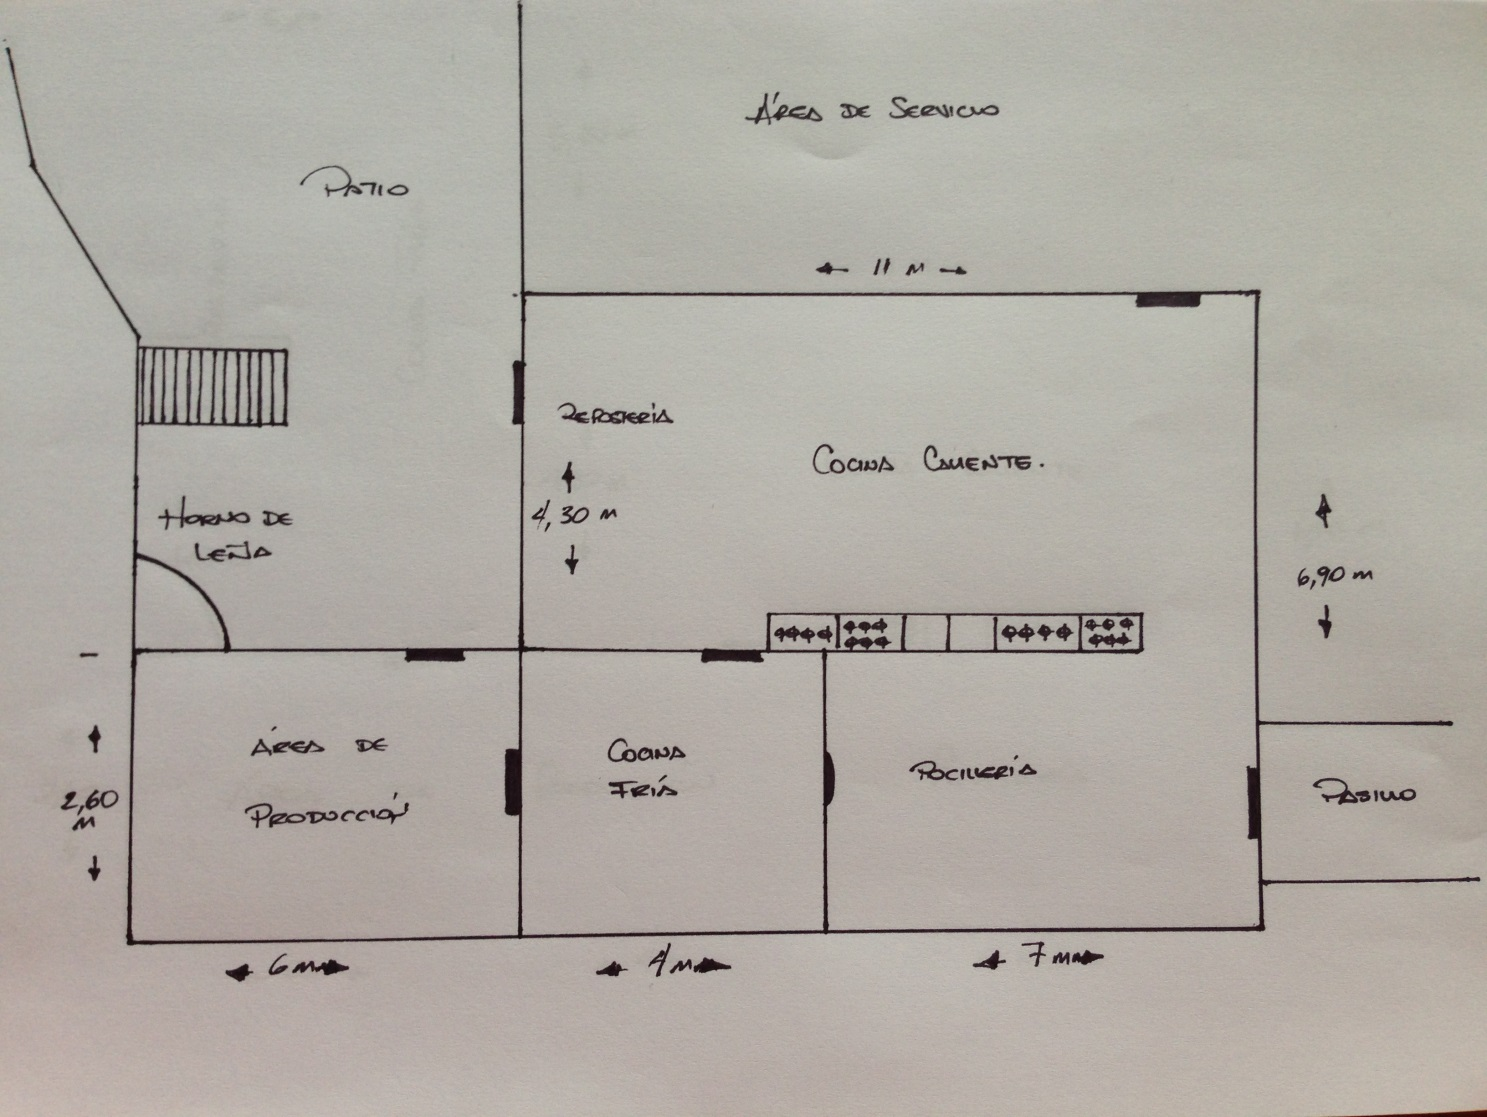 ÁREA DE SERVICIO
PATIO
11 M
REPOSTERÍA
COCINA CALIENTE.
HORNO DE
LEÑA
4,30 M
6,90 M
ÁREA DE
PRODUCCIÓN
COCINA
FRÍA
POCILLERÍA
PASILLO
2,60
M
6 M
4 M
7 M